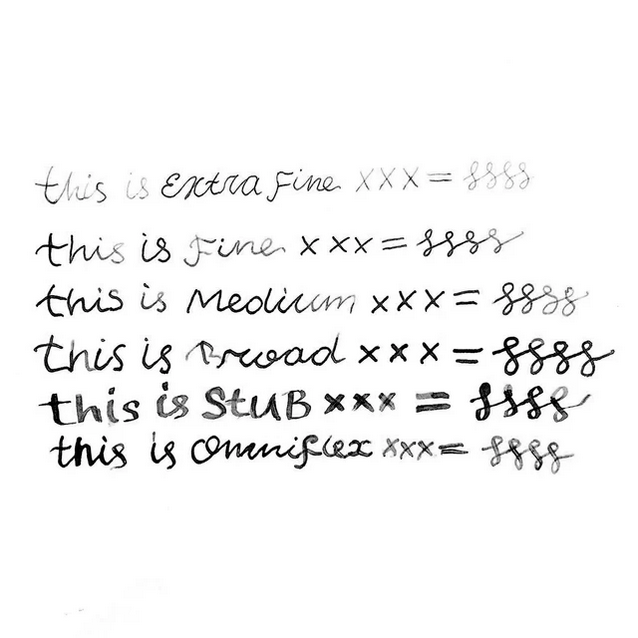 this is Extra Fine xxx = ffff
this is Fine xxx = ffff
this is Medium xxx = ffff
this is Broad xxx = ffff
this is StUB xxx = ffff
this is Omniflex xxx = ffff